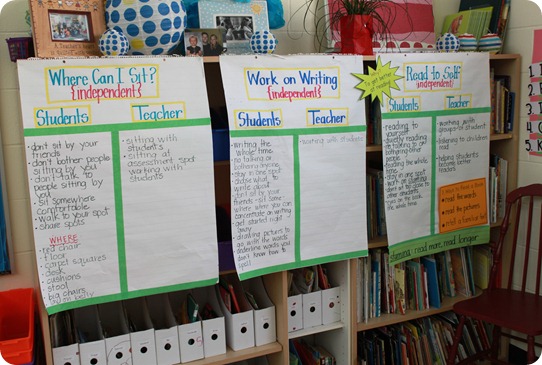 Where Can I Sit?
{independent}
Students
Teacher
• don't sit by your
friends
• don't bother people
sitting by you
• don't talk to
people sitting by
you
• sit somewhere
comfortable
• walk to your spot
• share spots
WHERE
• red chair
• floor
• carpet squares
• desk
• cushions
• stool
• big chairs
• sitting with
students
• sitting at
assessment spot
working with
students
Work on Writing
{independent}
Students
Teacher
• writing the
whole time
• no talking or
bothering anyone
• stay in one spot
• choose what to
write about
• don't sit by your
friends - sit some-
where where you can
concentrate on writing
• get started right
away
• drawing pictures to
go with the words
• underline words you
don't know how to
spell
• working with students
to get better
Read to Self
{independent}
Students
Teacher
• reading to
yourself
• quietly reading
• no talking to or
bothering other
people
• reading the whole
time
• stay in one spot
• get started
• don't sit close to
other students
• eyes on the book
the whole time
• working with
groups or students
• listening to
children read
• helping students
become better
readers
3 ways to Read a Book
read the words
read the pictures
retell a familiar book
stamina: read more, read longer